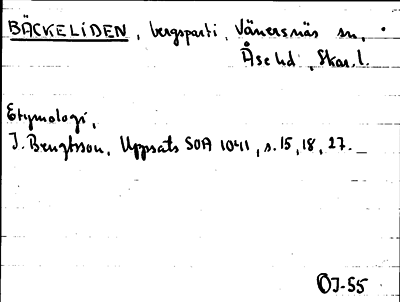 BÄCKELIDEN, bergsparti, Vänersnäs sn,
Åse hd, Skar. l.
Etymologi,
J. Bengtsson, Uppsats SOA 1041, s. 15, 18, 27.
OJ-55